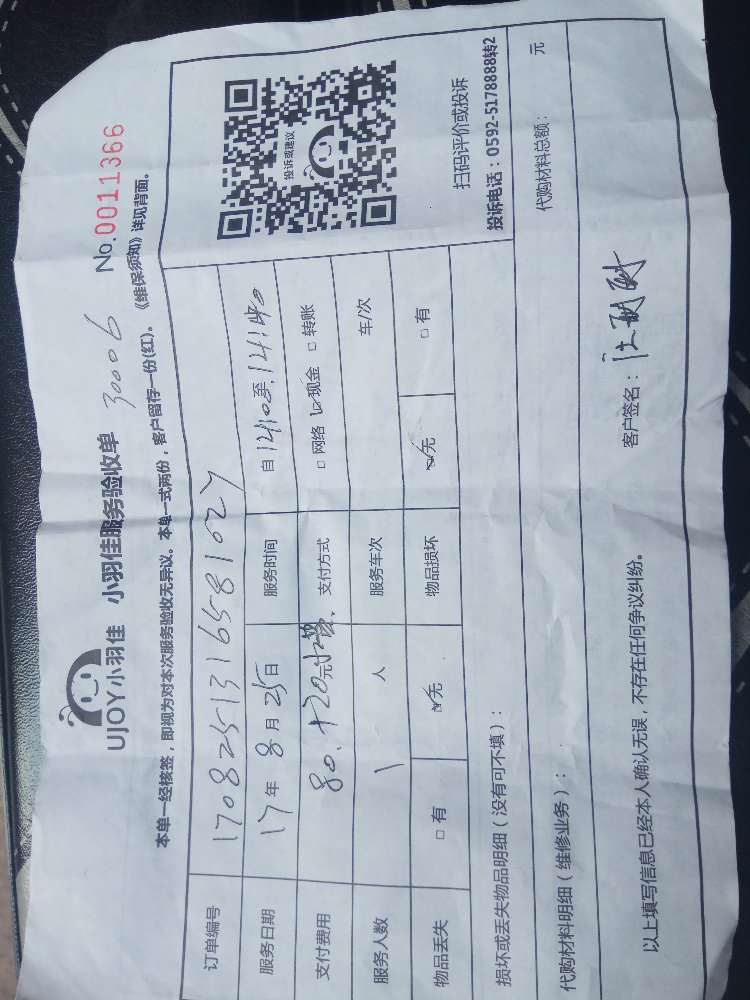 UJOY小羽佳 小羽佳服务验收单 30006 No.0011366
本单一经核签，即视为对本次服务验收无异议。本单一式两份，客户留存一份(红)。《维保须知》详见背面。
订单编号 1708251316581027
服务日期 17年8月25日 服务时间 自14:10至14:40
支付费用 80.+20元 支付方式 □网络 ☑现金 □转账
服务人数 1 人 服务车次 车/次
物品丢失 □有 ☑无 物品损坏 ☑无 □有
投诉或建议
扫码评价或投诉
投诉电话：0592-5178888转2
损坏或丢失物品明细（没有可不填）：
代购材料明细（维修业务）： 代购材料总额： 元
以上填写信息已经本人确认无误，不存在任何争议纠纷。
客户签名：